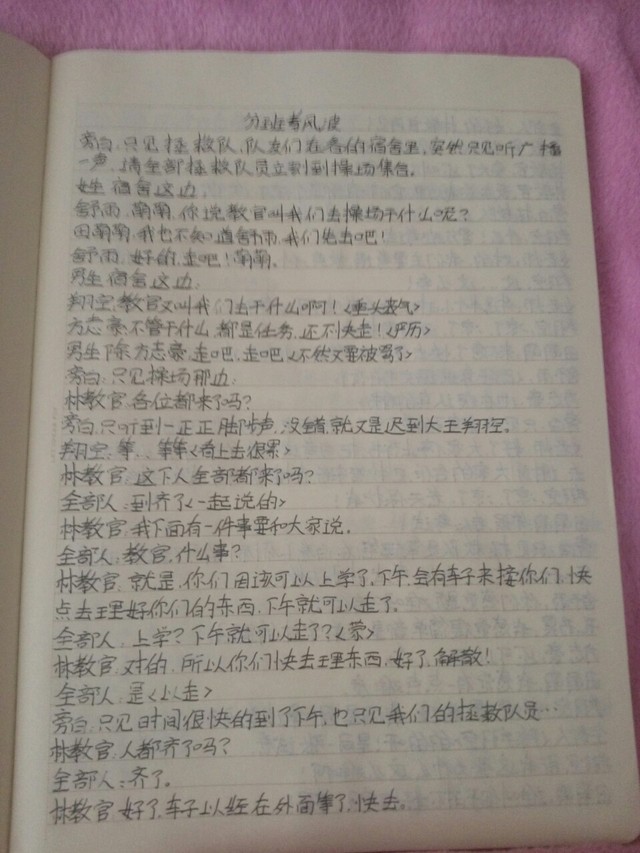 分班考风波
旁白:只见拯救队,队友们在各的宿舍里,突然只见听广播
一声,请全部拯救队员立刻到操场集合。
女生宿舍这边,
舒雨:萌萌,你说教官叫我们去操场干什么呢?
田萌萌:我也不知道舒雨,我们先去吧!
舒雨:好的,走吧!萌萌、
男生宿舍这边:
翔空:教官又叫我们去干什么啊!<垂头丧气>
方志豪:不管干什么,都是任务,还不快走!<严历>
男生除方志豪:走吧,走吧<不然又要被骂了>
旁白:只见操场那边:
林教官:各位都来了吗?
旁白:只听到一正正脚步声,没错,就又是迟到大王翔空。
翔空:等、等等<看上去很累>
林教官:这下人全部都来了吗?
全部人:到齐了<一起说的>
林教官:我下面有一件事要和大家说,
全部人:教官,什么事?
林教官:就是,你们因该可以上学了,下午,会有车子来接你们,快
点去理好你们的东西,下午就可以走了。
全部人:上学?下午就可以走了?<蒙>
林教官:对的,所以你们快去理东西,好了,解散!
全部人:是<以走>
旁白:只见时间很快的到了下午,也只见我们的拯救队员…
林教官:人都齐了吗?
全部人:齐了。
林教官:好了,车子以经在外面等了,快去。